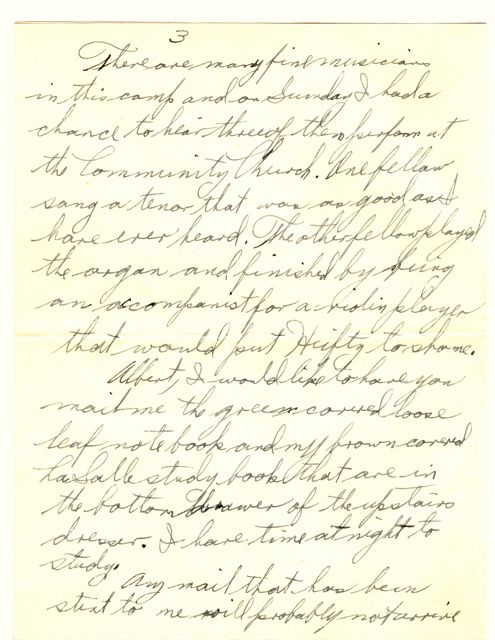 3
There are many fine musicians
in this camp and on Sunday I had a
chance to hear three of them perform at
the Community Church. One fellow
sang a tenor that was as good as I
have ever heard. The other fellow played
the organ and finished by being
an acompanist for a violin player
that would put Hiifty to shame.
Albert, I would like to have you
mail me the green covered loose
leaf note book and my brown covered
LaSalle study book that are in
the bottom drawer of the upstairs
dresser. I have time at night to
study.
Any mail that has been
sent to me will probably not arrive